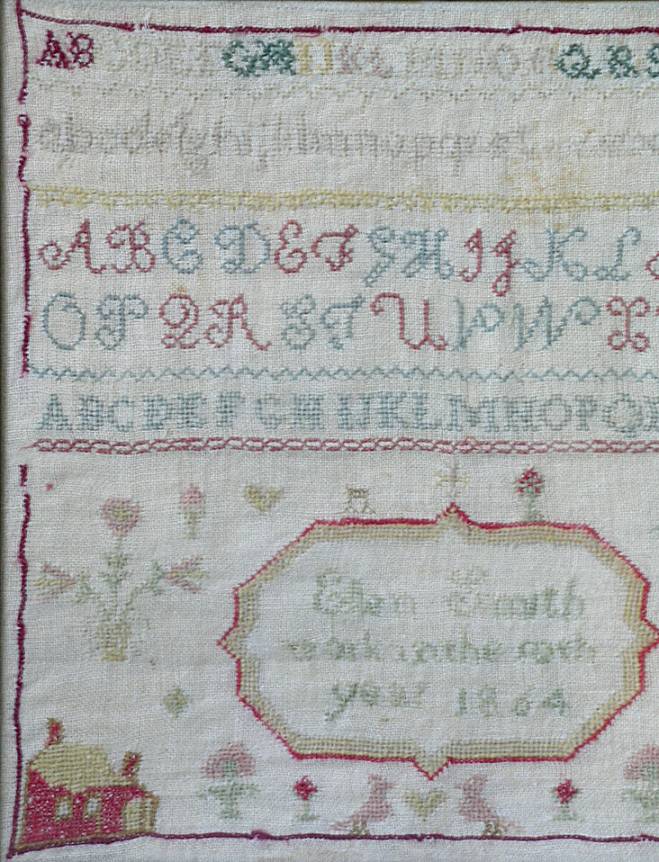 AB GH IJ Q R S
abcdefghijklmnopqrst
A B C D E F G H I J K L
O P Q R S T U V W X
ABCDEFGHIJKLMNOPQ
Ellen Smith
work in the
year 1864